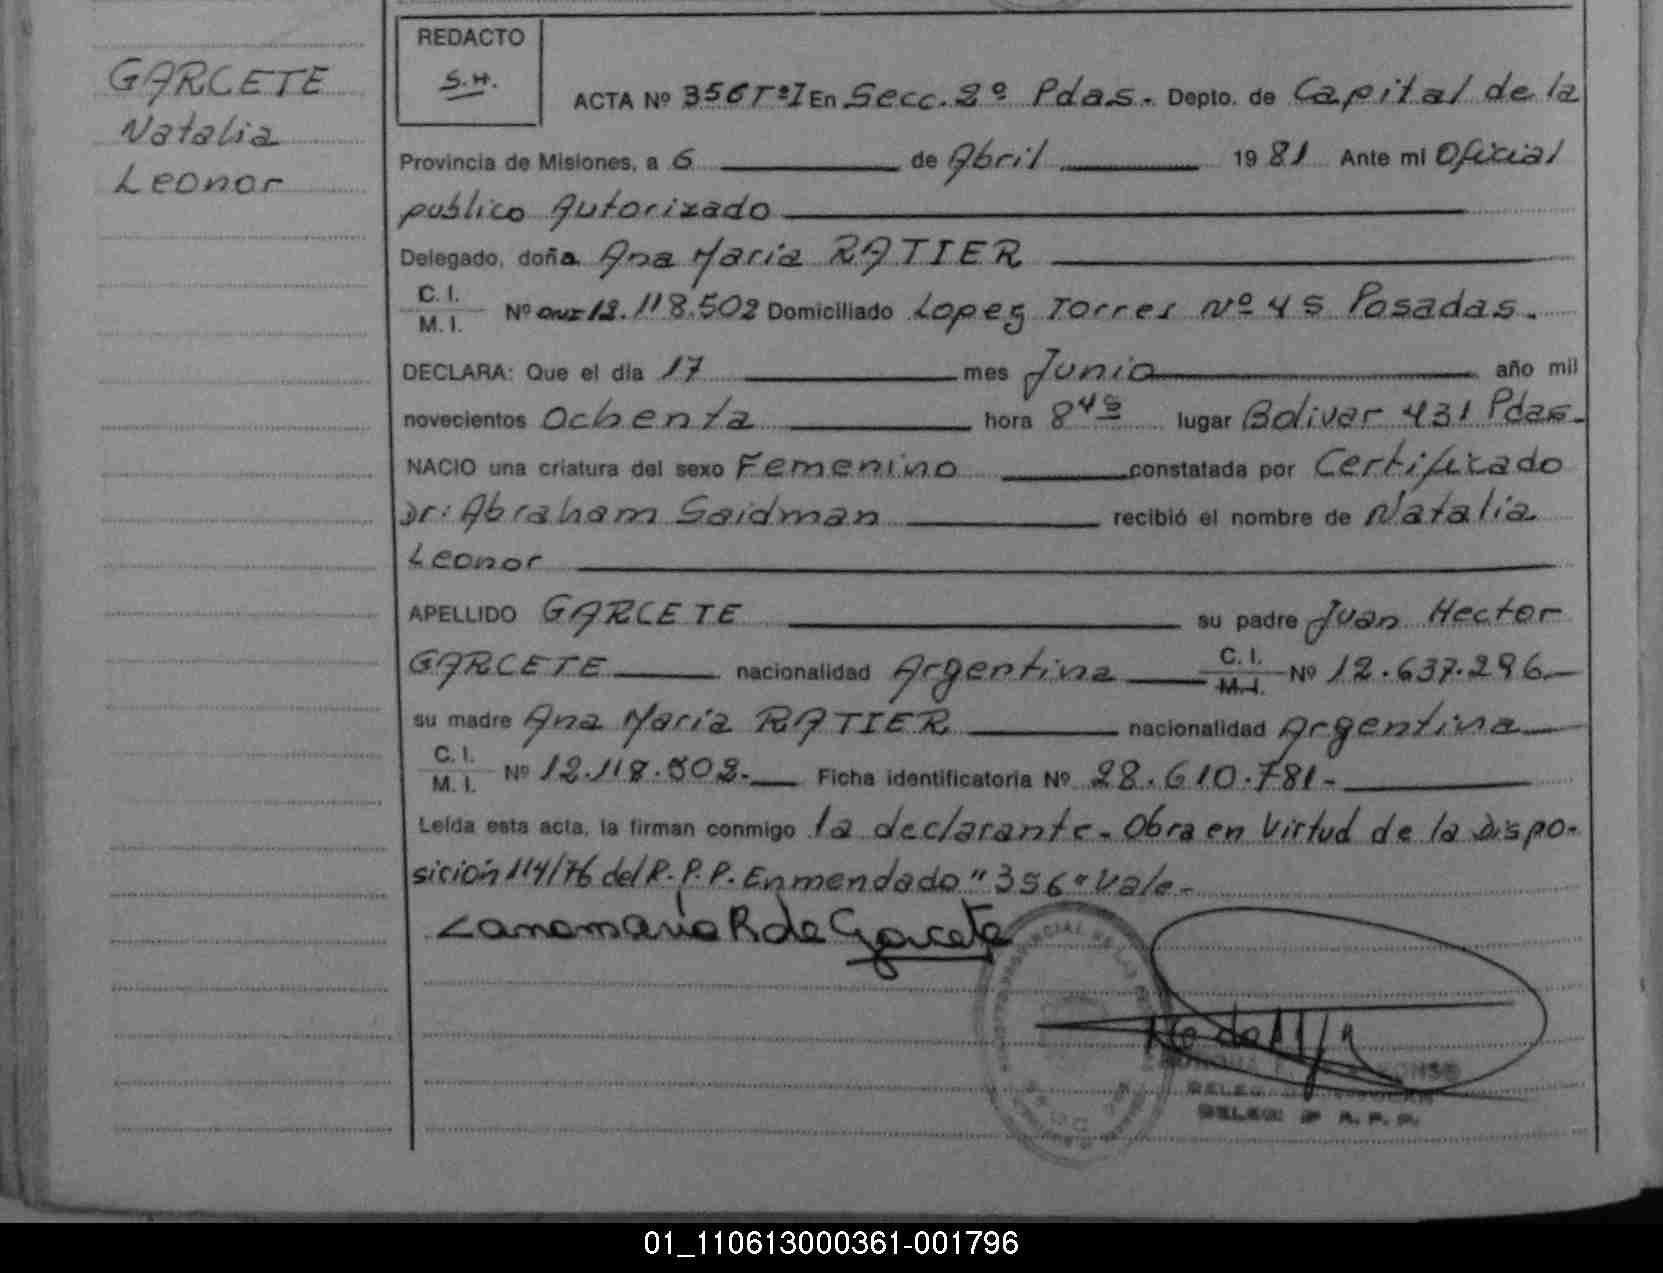 GARCETE
Natalia
Leonor
REDACTO
S.H.
ACTA Nº 356 Tº I En Secc. 2º Pdas. Depto. de Capital de la
Provincia de Misiones, a 6 de Abril 1981 Ante mi Oficial
publico Autorizado
Delegado, doña Ana Maria RATIER
C. I.
M. I. Nº 12.118.502 Domiciliado Lopez Torres Nº 45 Posadas.
DECLARA: Que el día 17 mes Junio año mil
novecientos Ochenta hora 8 45 lugar Bolivar 431 Pdas.
NACIO una criatura del sexo Femenino constatada por Certificado
Dr: Abraham Saidman recibió el nombre de Natalia
Leonor
APELLIDO GARCETE su padre Juan Hector
GARCETE nacionalidad Argentina C. I. M. I. Nº 12.637.296
su madre Ana Maria RATIER nacionalidad Argentina
C. I.
M. I. Nº 12.118.502. Ficha identificatoria Nº 28.610.781.
Leída esta acta, la firman conmigo la declarante. Obra en Virtud de la Dispo-
sición 114/76 del R.P.P. Enmendado "356" Vale.
R de Garcete
DELEG. 2º R.P.P.
01_110613000361-001796